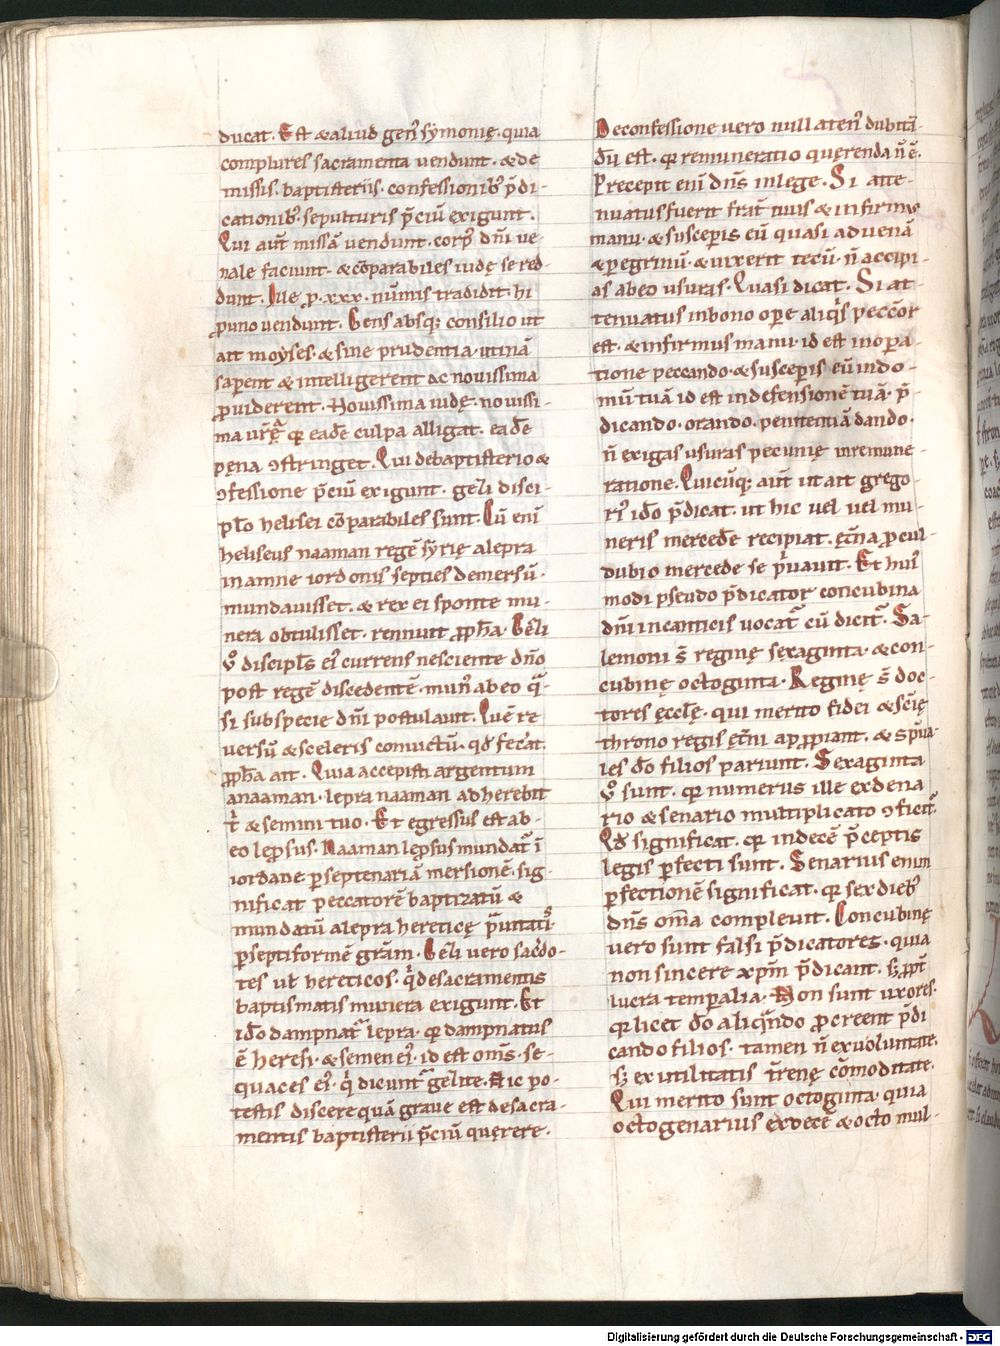 ducat. Est & aliud gen᷒ sẏmonię. quia
complures sacramenta uendunt. & de
missis. baptisteriis. confessionib᷒ p̄di-
cationib᷒. sepulturis p̄ciū exigunt.
Qui aut̄ missā uendunt. corp᷒ dn̄i ue-
nale faciunt. & cōparabiles iudę se red-
dunt. Ille ꝓ .xxx. nūmis tradidit. hi
ꝓ uno uendunt. Gens absq; consilio ut
ait moẏses. & sine prudentia. utinā
saperent & intelligerent ac nouissima
ꝓuiderent. Nouissima iudę. nouissi-
ma ur̄ę. qꝛ eadē culpa alligat. eadē
pęna ꝯstringet. Qui de baptisterio &
ꝯfessione p̄ciū exigunt. gezi disci-
pl̄o helisei cōparabiles sunt. Cū eni̅
heliseus naaman regē sẏrię a lepra
in amne iordonis septies demersū.
mundauisset. & rex ei sponte mu-
nera obtulisset. rennuit ꝓph̄a. Gezi
ů discipl̄s ei᷒ currens nesciente dn̄o
post regē discedentē. mun̄ ab eo qͣ-
si sub specie dn̄i postulauit. Quē re
uersū & sceleris conuictū. qd̄ fecat.
ꝓph̄a ait. Quia accepisti argentum
a naaman. lepra naaman adherebit
t̄ & semini tuo. Et egressus est ab-
eo lep̱sus. Naaman lep̱sus mundat᷑ ī
iordane ꝑ septenariā mersionē. sig-
nificat peccatorē baptizatū &
mundatū a lepra hereticę p̄uitatis.
ꝑ septiformē grām. Gezi uero sacdo-
tes ul̄ hereticos. qͥ de sacramentis
baptismatis munera exigunt. Et
idō dampnat᷑ lepra. qꝛ dampnatus
ē heresi. & semen ei᷒. id est om̄s. se-
quaces ei᷒. qͥ dicunt᷑ gezite. Hic po-
testis discere quā graue est de sacra-
mentis baptisterii p̄ciū querere.
De confessione uero nulla ten᷒ dubitā-
dū est. qꝛ remuneratio quęrenda n̄ ē.
Precepit eni̅ dn̄s in lege. Si atte-
nuatus fuerit frat̄ tuus & infirm᷒
manu. & susceperis eū quasi aduenā
& peregrinū. & uixerit tecū. n̄ accipi-
as ab eo usuras. Quasi dicat. Si at-
tenuatus in bono oꝑe aliqͥs peccōr
est. & infirmus manu. id est in oꝑa-
tione peccando. & susceperis eū in do-
mū tuā id est in defensionē tuā. p̄
dicando. orando. penitentiā dando.
n̄ exigas usuras pecunię in remune-
ratione. Quicūq; aut̄ ut ait grego-
ri᷒ idō p̄dicat. ut hic uel uel mu-
neris mercedē recipiat. ęt̄na ꝓcul-
dubio mercede se pͥuauit. Et hui᷒
modi pseudo p̄dicator concubina
dn̄i in canticis uocat᷑ cū dicit᷑. Sa-
lemoni s̄ reginę sexaginta. & con-
cubinę octoginta. Reginę s̄ doc-
tores ęcclę. qui merito fidei & sc̄ię
throno regis ęt̄ni apꝓpiant. & sp̄ua-
les dō filios pariunt. Sexaginta
ů sunt. qꝛ numerus ille ex dena
rio & senario multiplicato ꝯficit᷑.
Qd̄ significat. qꝛ in decē p̄ceptis
legis ꝑfecti sunt. Senarius enim
ꝑfectionē significat. qꝛ sex dieb᷒
dn̄s om̄a compleuit. Concubinę
uero sunt falsi p̄dicatores. quia
non sincere xp̄m p̄dicant. s; ꝓpt̄
lucra temꝑalia. Non sunt uxores.
qꝛ licet dō aliqͣndo ꝓcreent p̄di
cando filios. tamen n̄ ex uoluntate.
s; ex utilitatis t̄renę cōmoditate.
Qui merito sunt octoginta. quia
octogenarius ex decē & octo mul-
Digitalisierung gefördert durch die Deutsche Forschungsgemeinschaft - DFG